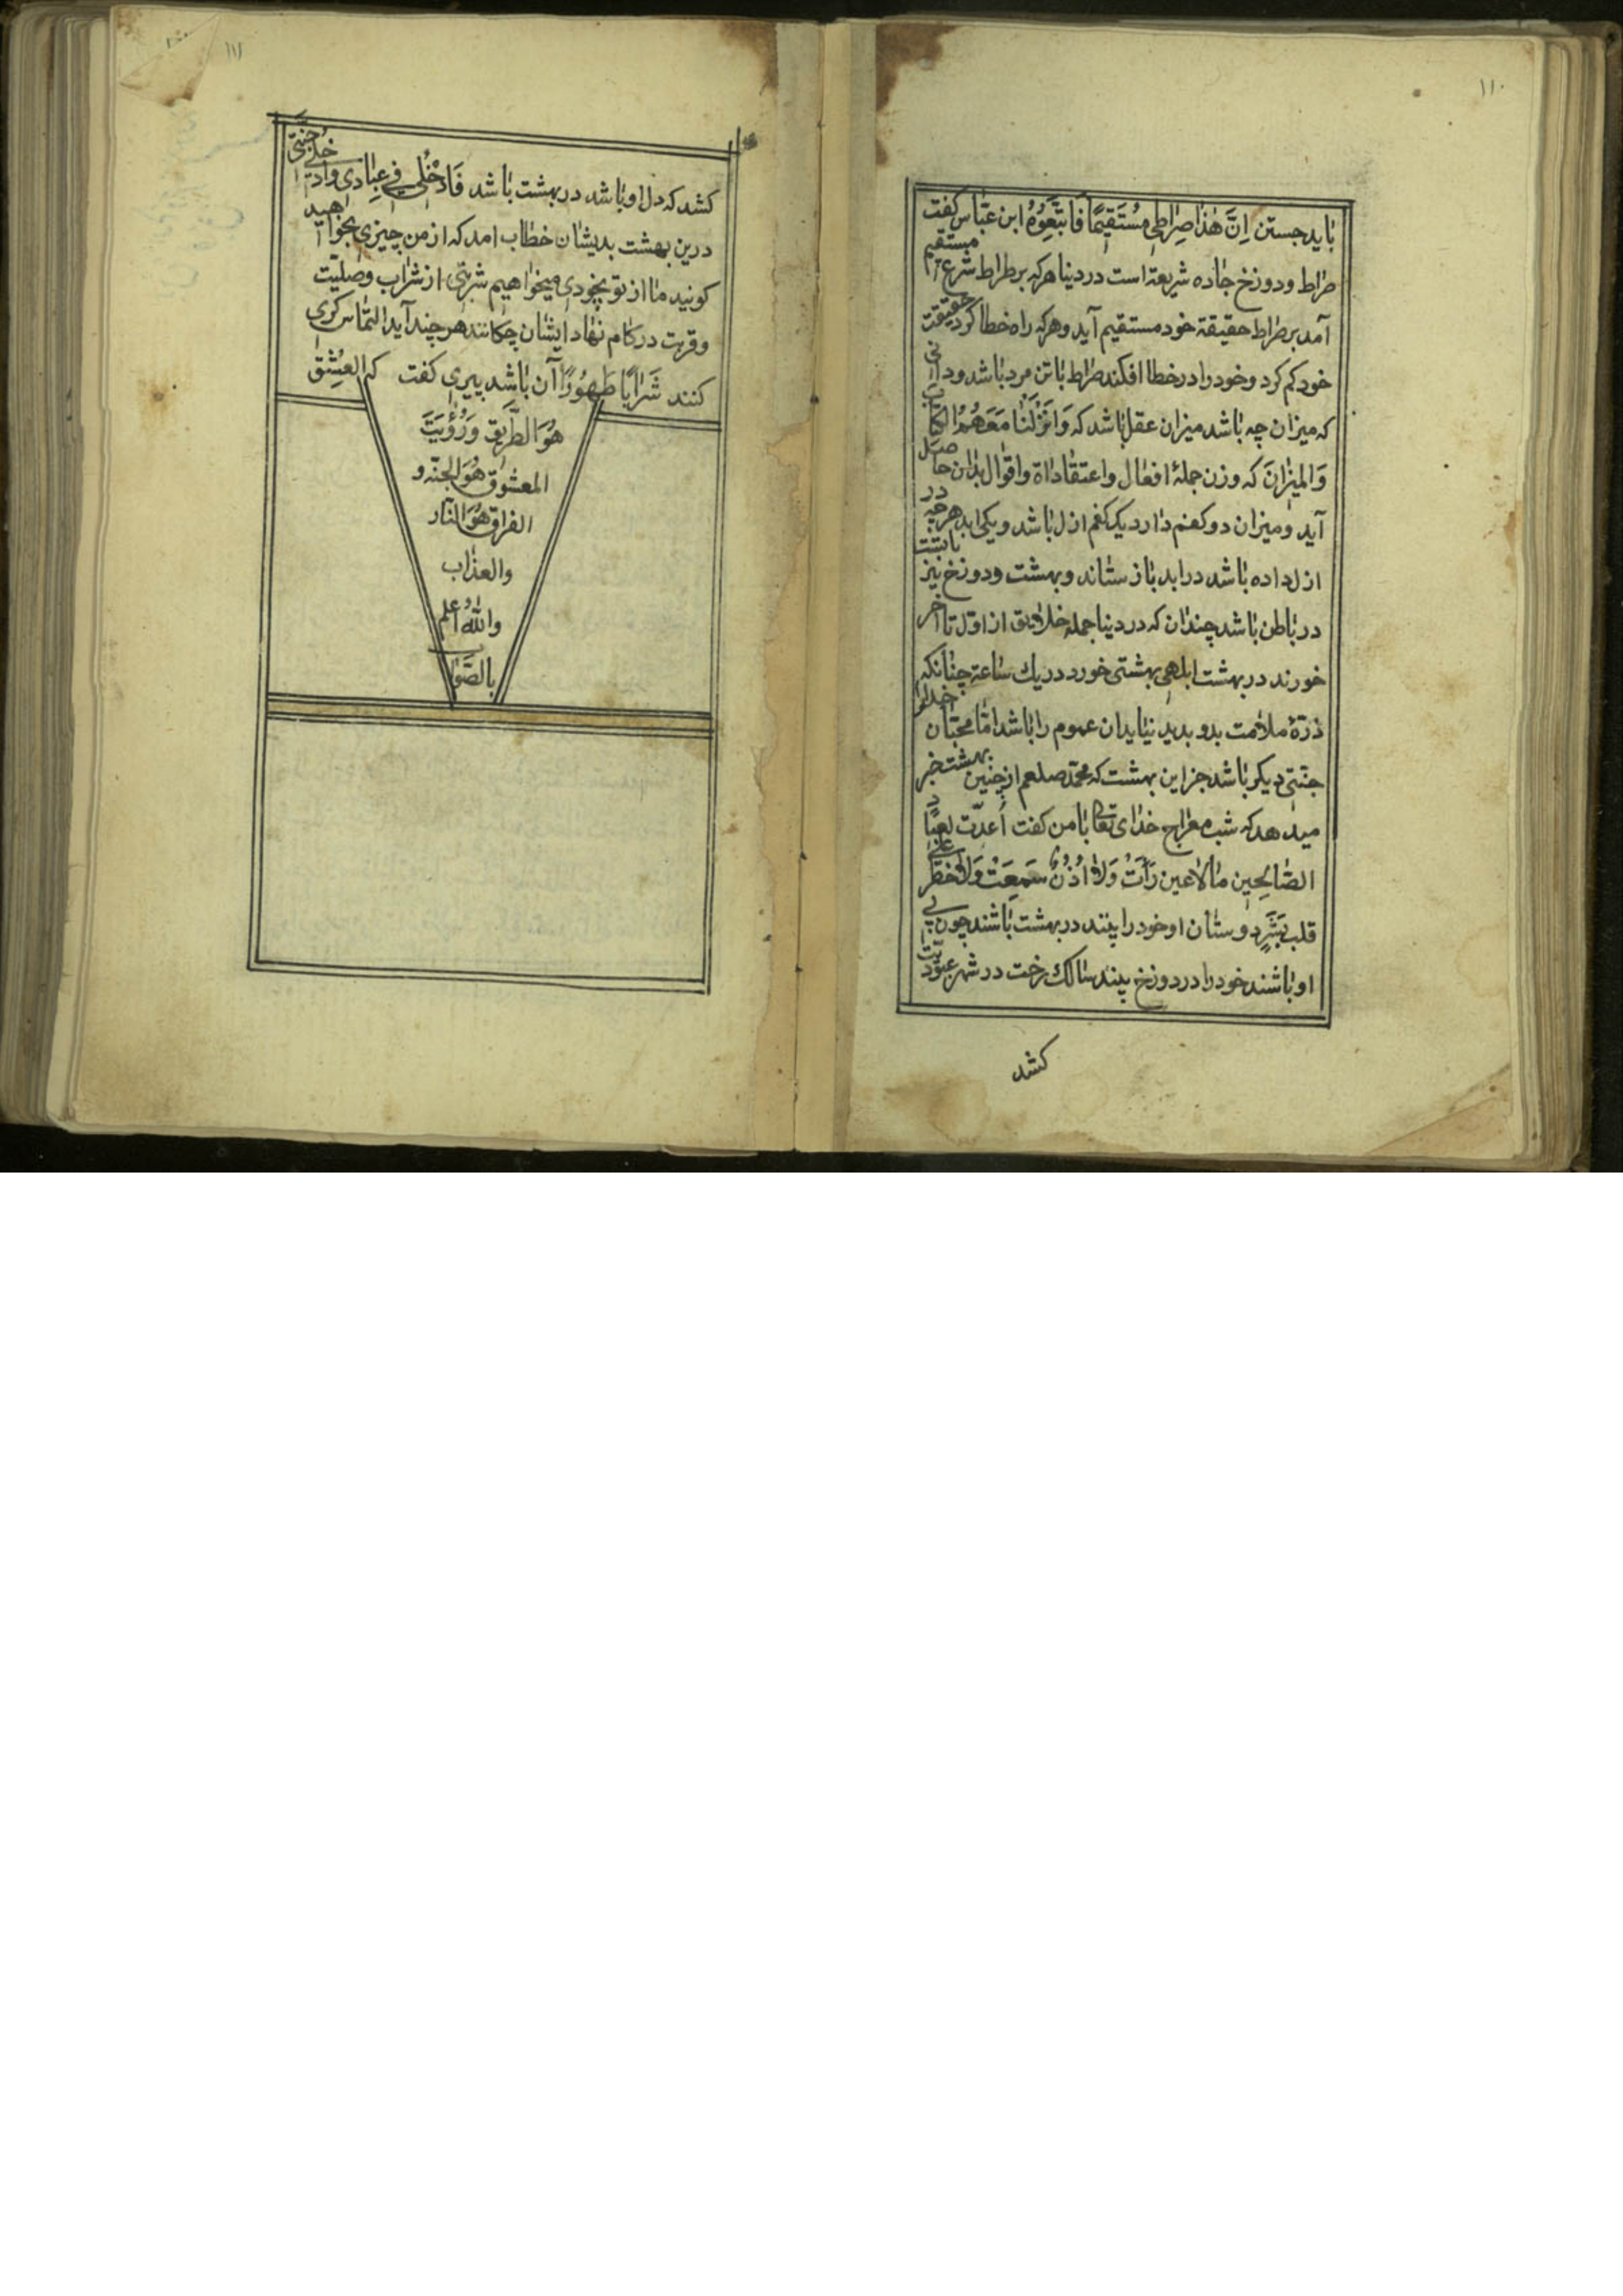 ۱۱۰
باید جستن اِنَّ هٰذا صِراطی مُستَقیمًا فَاتَّبَعِوُهُ ابن عبّاس کفت
صراط ودوزخ جاده شریعة است در دینا هرکه بر طراط شرع مستقیم
آمد بر صراط حقیقة خود مستقیم آید وهرکه راه خطا کرد حقیقت
خود کم کرد وخود را در خطا افکند صراط باتن مرد باشد ودانی
که میزان چه باشد میزان عقل باشد که وَانزَلنا مَعَهُمُ الکتاب
وَالمیزانَ که وزن جملهٔ افعال واعتقاداة واقوال بدان حاصل
آید ومیزان دو کفم دارد یک کفم ازل باشد ویکی ابد هرچه در
ازل داده باشد در ابد باز ستاند وبهشت ودوزخ نیز بابتت
در باطن باشد چندان که در دینا جمله خلایق از اوّل تا آخر
خورند در بهشت ابلهی بهشتی خورد در یك ساعة چنانکه
ذرّهٔ ملامت بدو بدید نیاید ان عموم را باشد امّا محبّان خدا را
جنّتی دیکر باشد جز این بهشت که محمّد صلعم از چنین بهشت خبر
میدهد که شب معراج خدای تعالی بامن کفت اُعدّت لعبادی
الصّالحِین مالاعین رَأَتْ وَلا اُذُنٌ سَمِعَتْ وَلا خَطَرَ عَلی
قلب بَشَرٍ دوستان او خود را بینند در بهشت باشند چون بی
او باشند خود را در دوزخ بینند سالك رخت در شهر عبودیّت
کشد
۱۱۱
کشد که دل او باشد در بهشت باشد فَادْخُلی فی عِبادی وادخلی جنّتی
درین بهشت بدیشان خطاب امد که از من چیزی بخواهید
کونید ما از تو بیخودی میخواهیم شربتی از شراب وصلیّت
وقربت در کام نهاد ایشان چکانند هر چند آید التماس کری
کنند شَرابًا طَهُورًا آن باشد پیری کفت که العِشق
هُوَ الطَّریق وَرُؤیَتَ
المعشوق هُوَ الجنّه و
الفراق هُوَ النّار
والعذاب
واللهُ اعلم
بالصَّوا